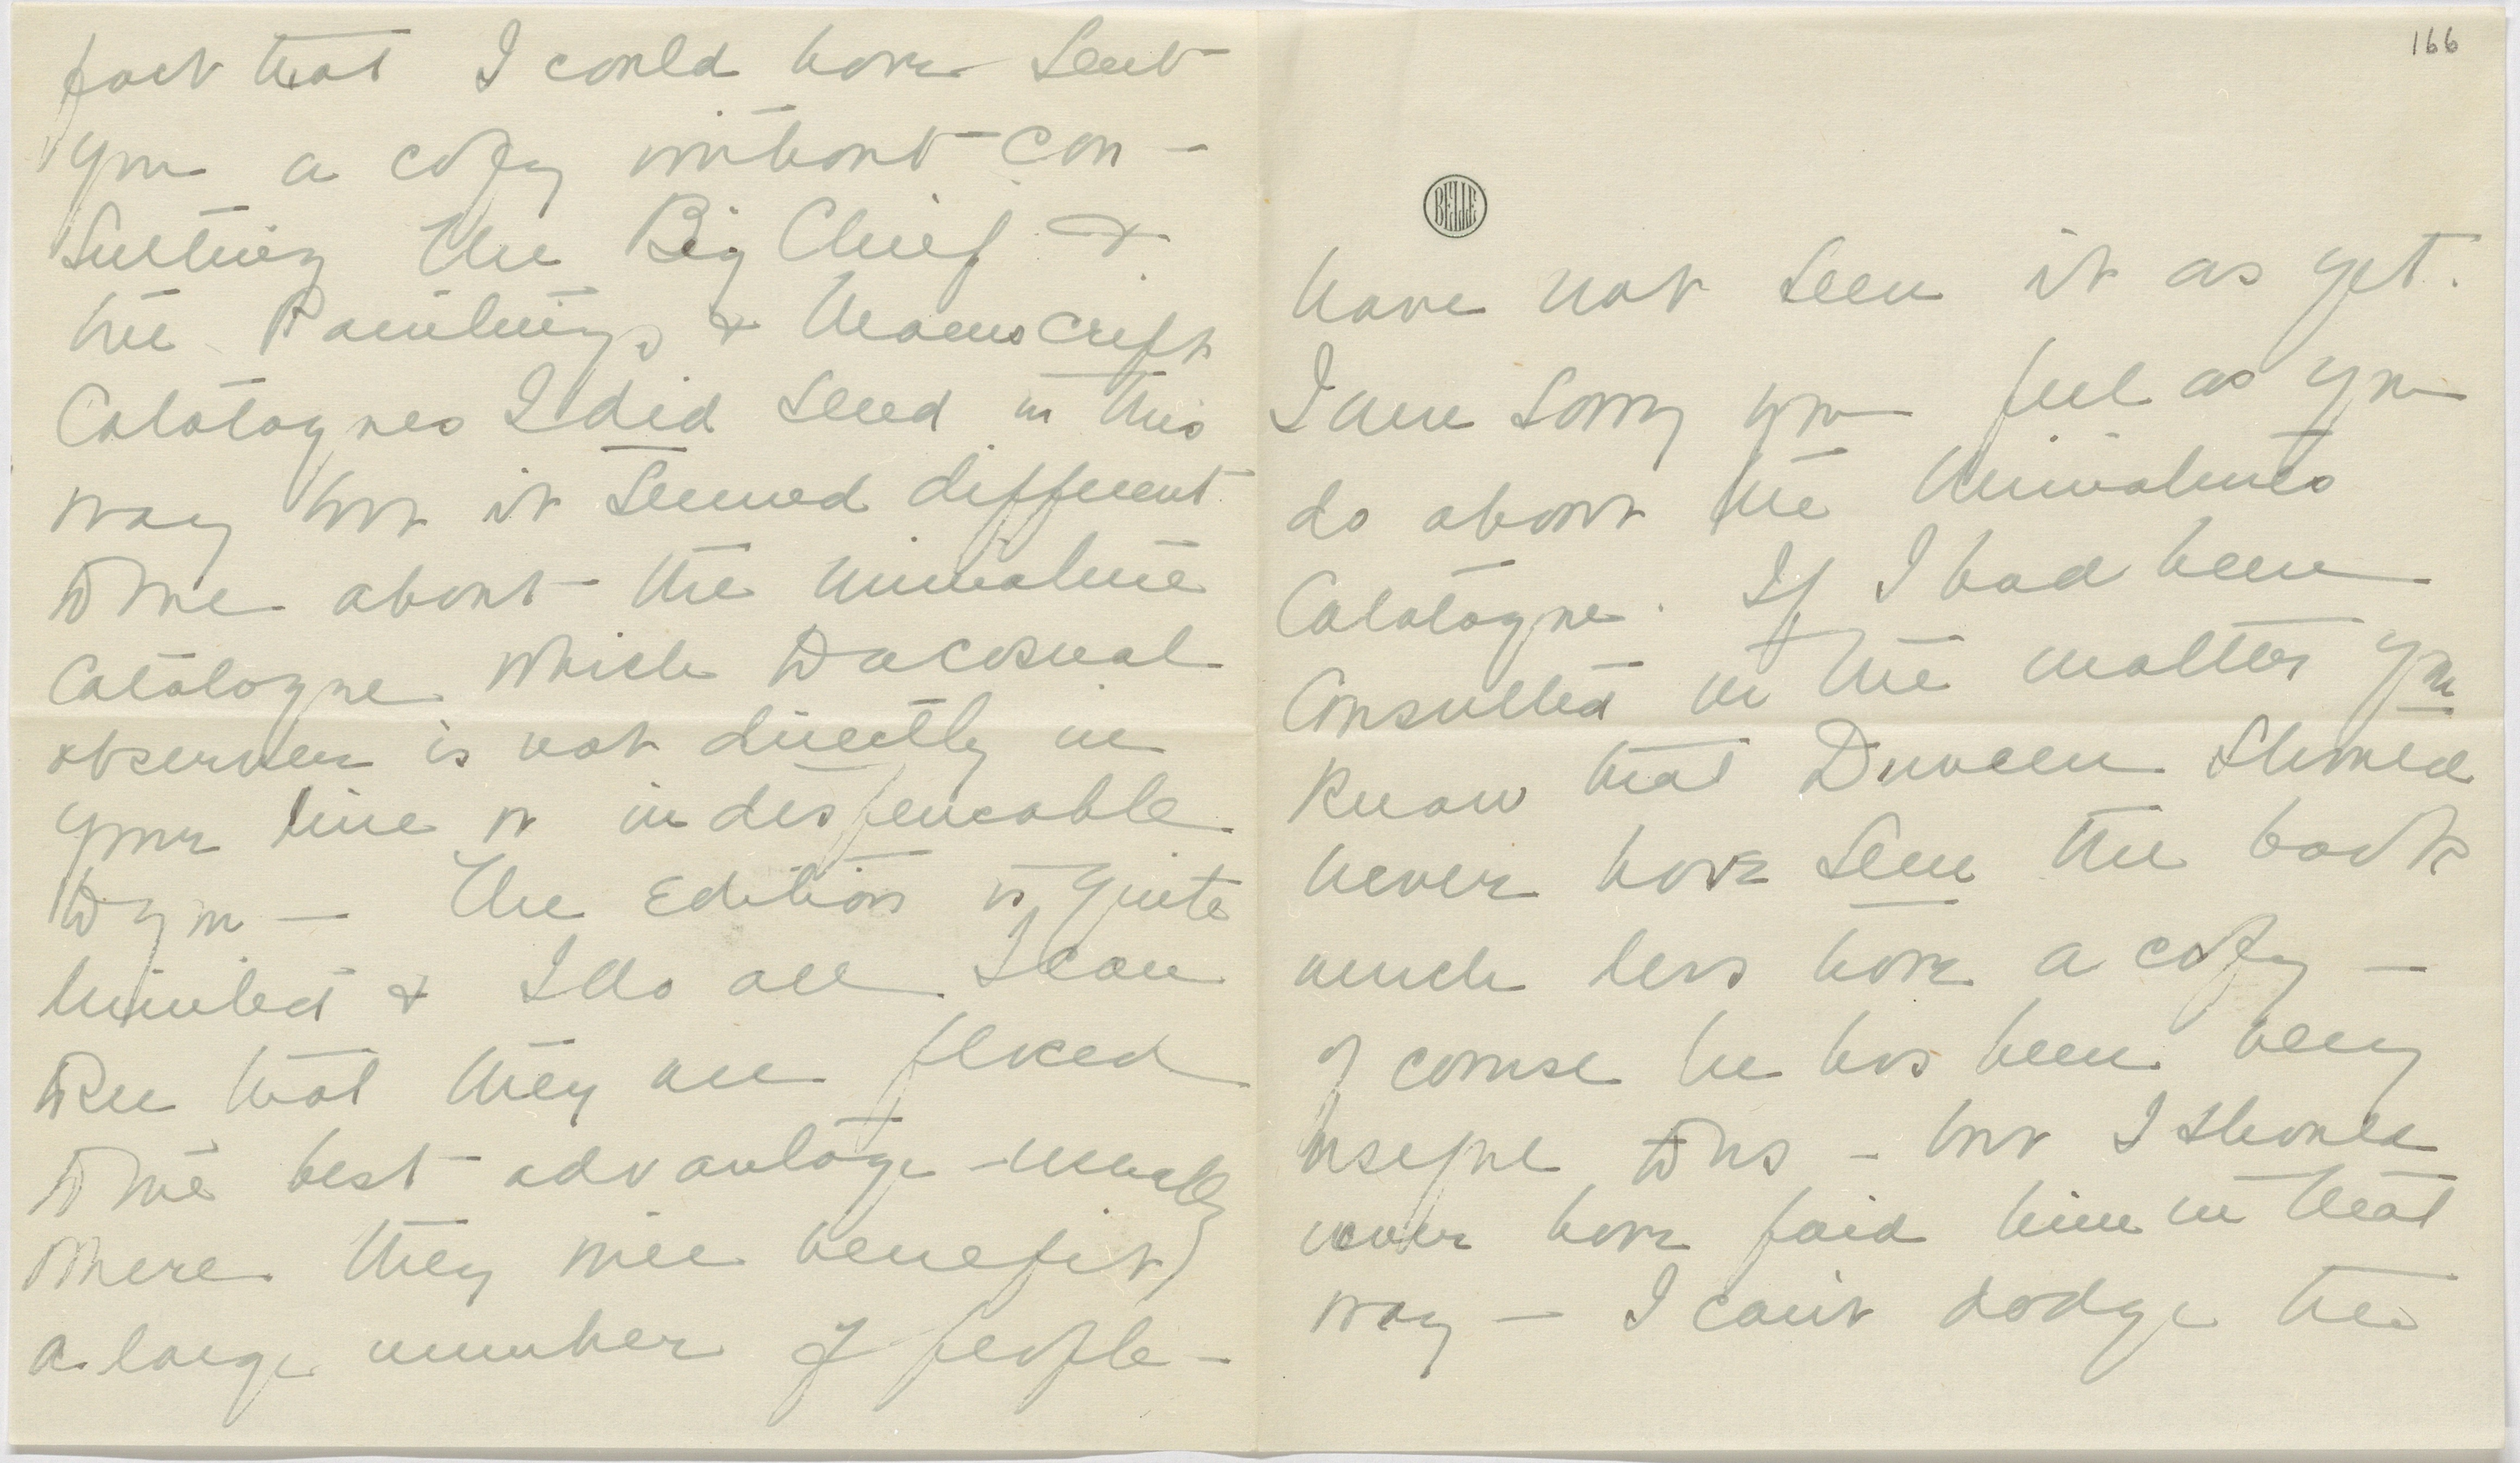 fact that I could have sent
you a copy without con-
sulting the Big Chief &
the Paintings & Manuscript
Catalogues I did send in this
way but it seemed different
to me about the miniature
Catalogue which to a casual
observer is not directly in
your line or indispensable
to you — The edition is quite
limited & I do all I can
to see that they are placed
to the best advantage - usually
where they will benefit
a large number of people -
166
BELLE
have not seen it as yet.
I am sorry you feel as you
do about the Miniatures
Catalogue. If I had been
consulted in the matter you
know that Duveen should
never have seen the book
much less have a copy —
of course he has been very
useful to us - but I should
never have paid him in that
way — I can't dodge the